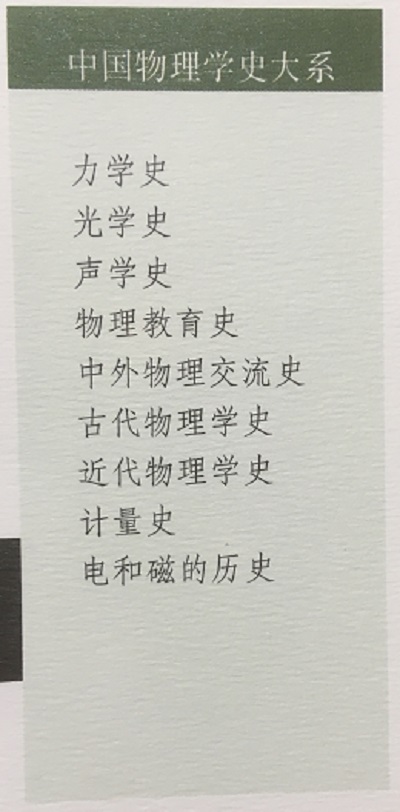 中国物理学史大系
力学史
光学史
声学史
物理教育史
中外物理交流史
古代物理学史
近代物理学史
计量史
电和磁的历史